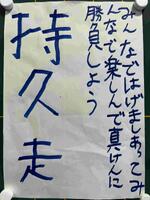 みんなではげましあってみ
んなで楽しんで真けんに
勝負しよう
持久走